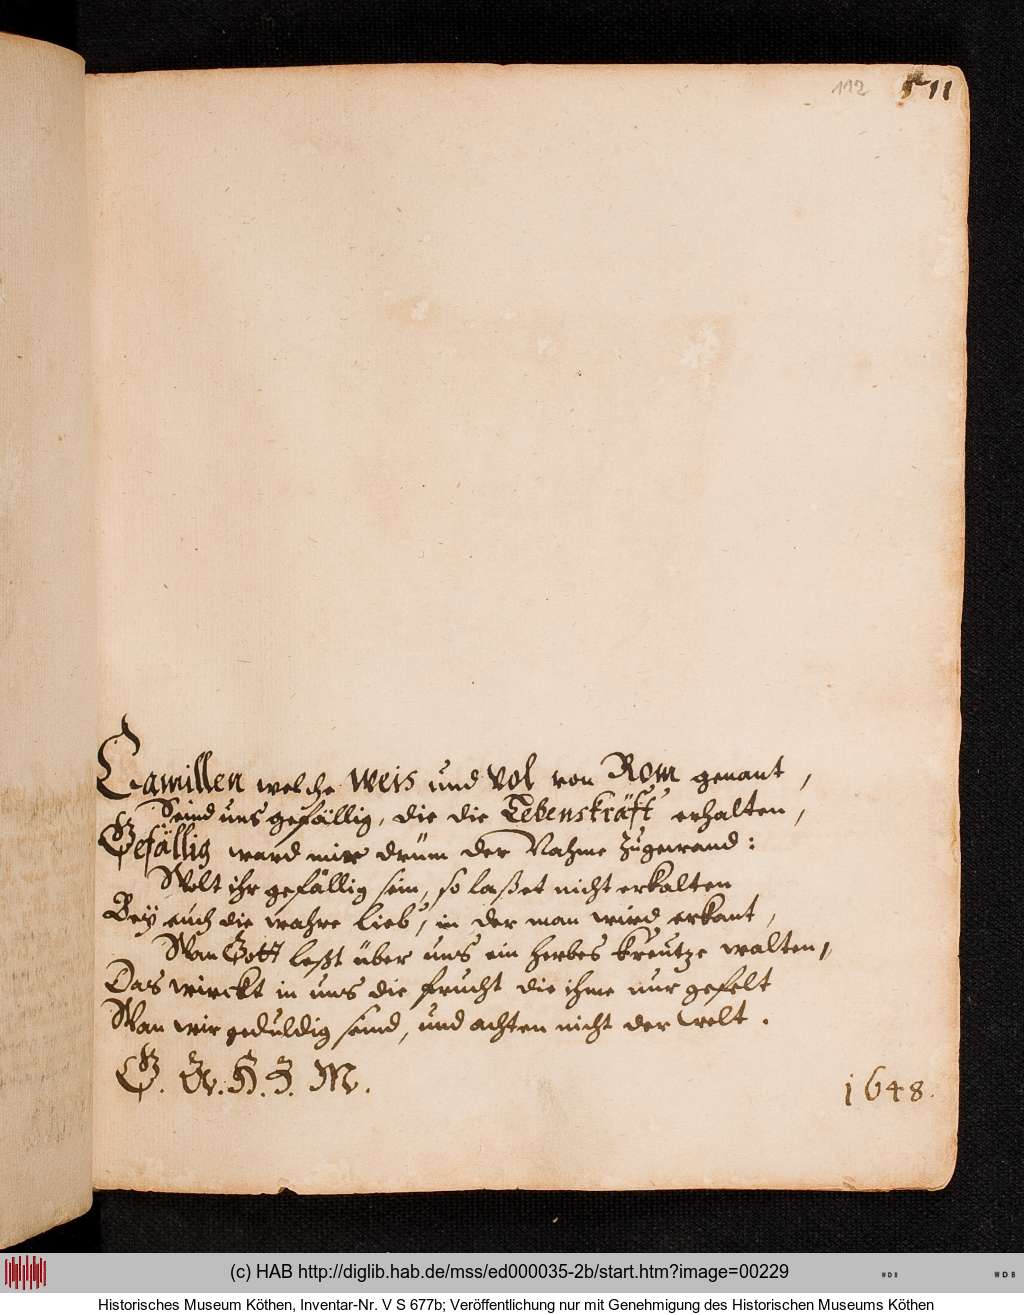 112 511
Camillen welche Weis und Vol von Rom genant,
Seind uns gefällig, die die Lebenskräft erhalten,
Gefällig ward mir drüm der Nahme zugewand:
Wolt ihr gefällig sein, so laßet nicht erkalten
Bey euch die wahre Lieb, in der man würd erkant,
Wan Gott leßt über uns ein herbes Kreutze walten,
Das wirckt in uns die frucht die ihme nur gefelt
Wan wir geduldig seind, und achten nicht der welt.
1648.
(c) HAB http://diglib.hab.de/mss/ed000035-2b/start.htm?image=00229
Historisches Museum Köthen, Inventar-Nr. V S 677b; Veröffentlichung nur mit Genehmigung des Historischen Museums Köthen